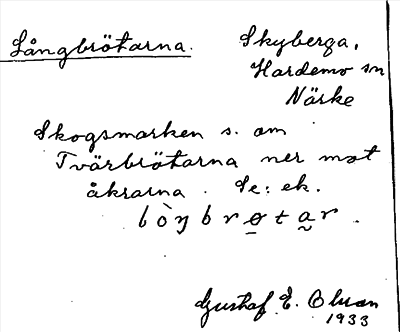 Långbrötarna.
Skyberga,
Hardemo sn
Närke
Skogsmarken s. om
Tvärbrötarna ner mot
åkrarna. Se: ek.
lòŋbrø̱ta̰r.
Gustaf E. Olsson
1933